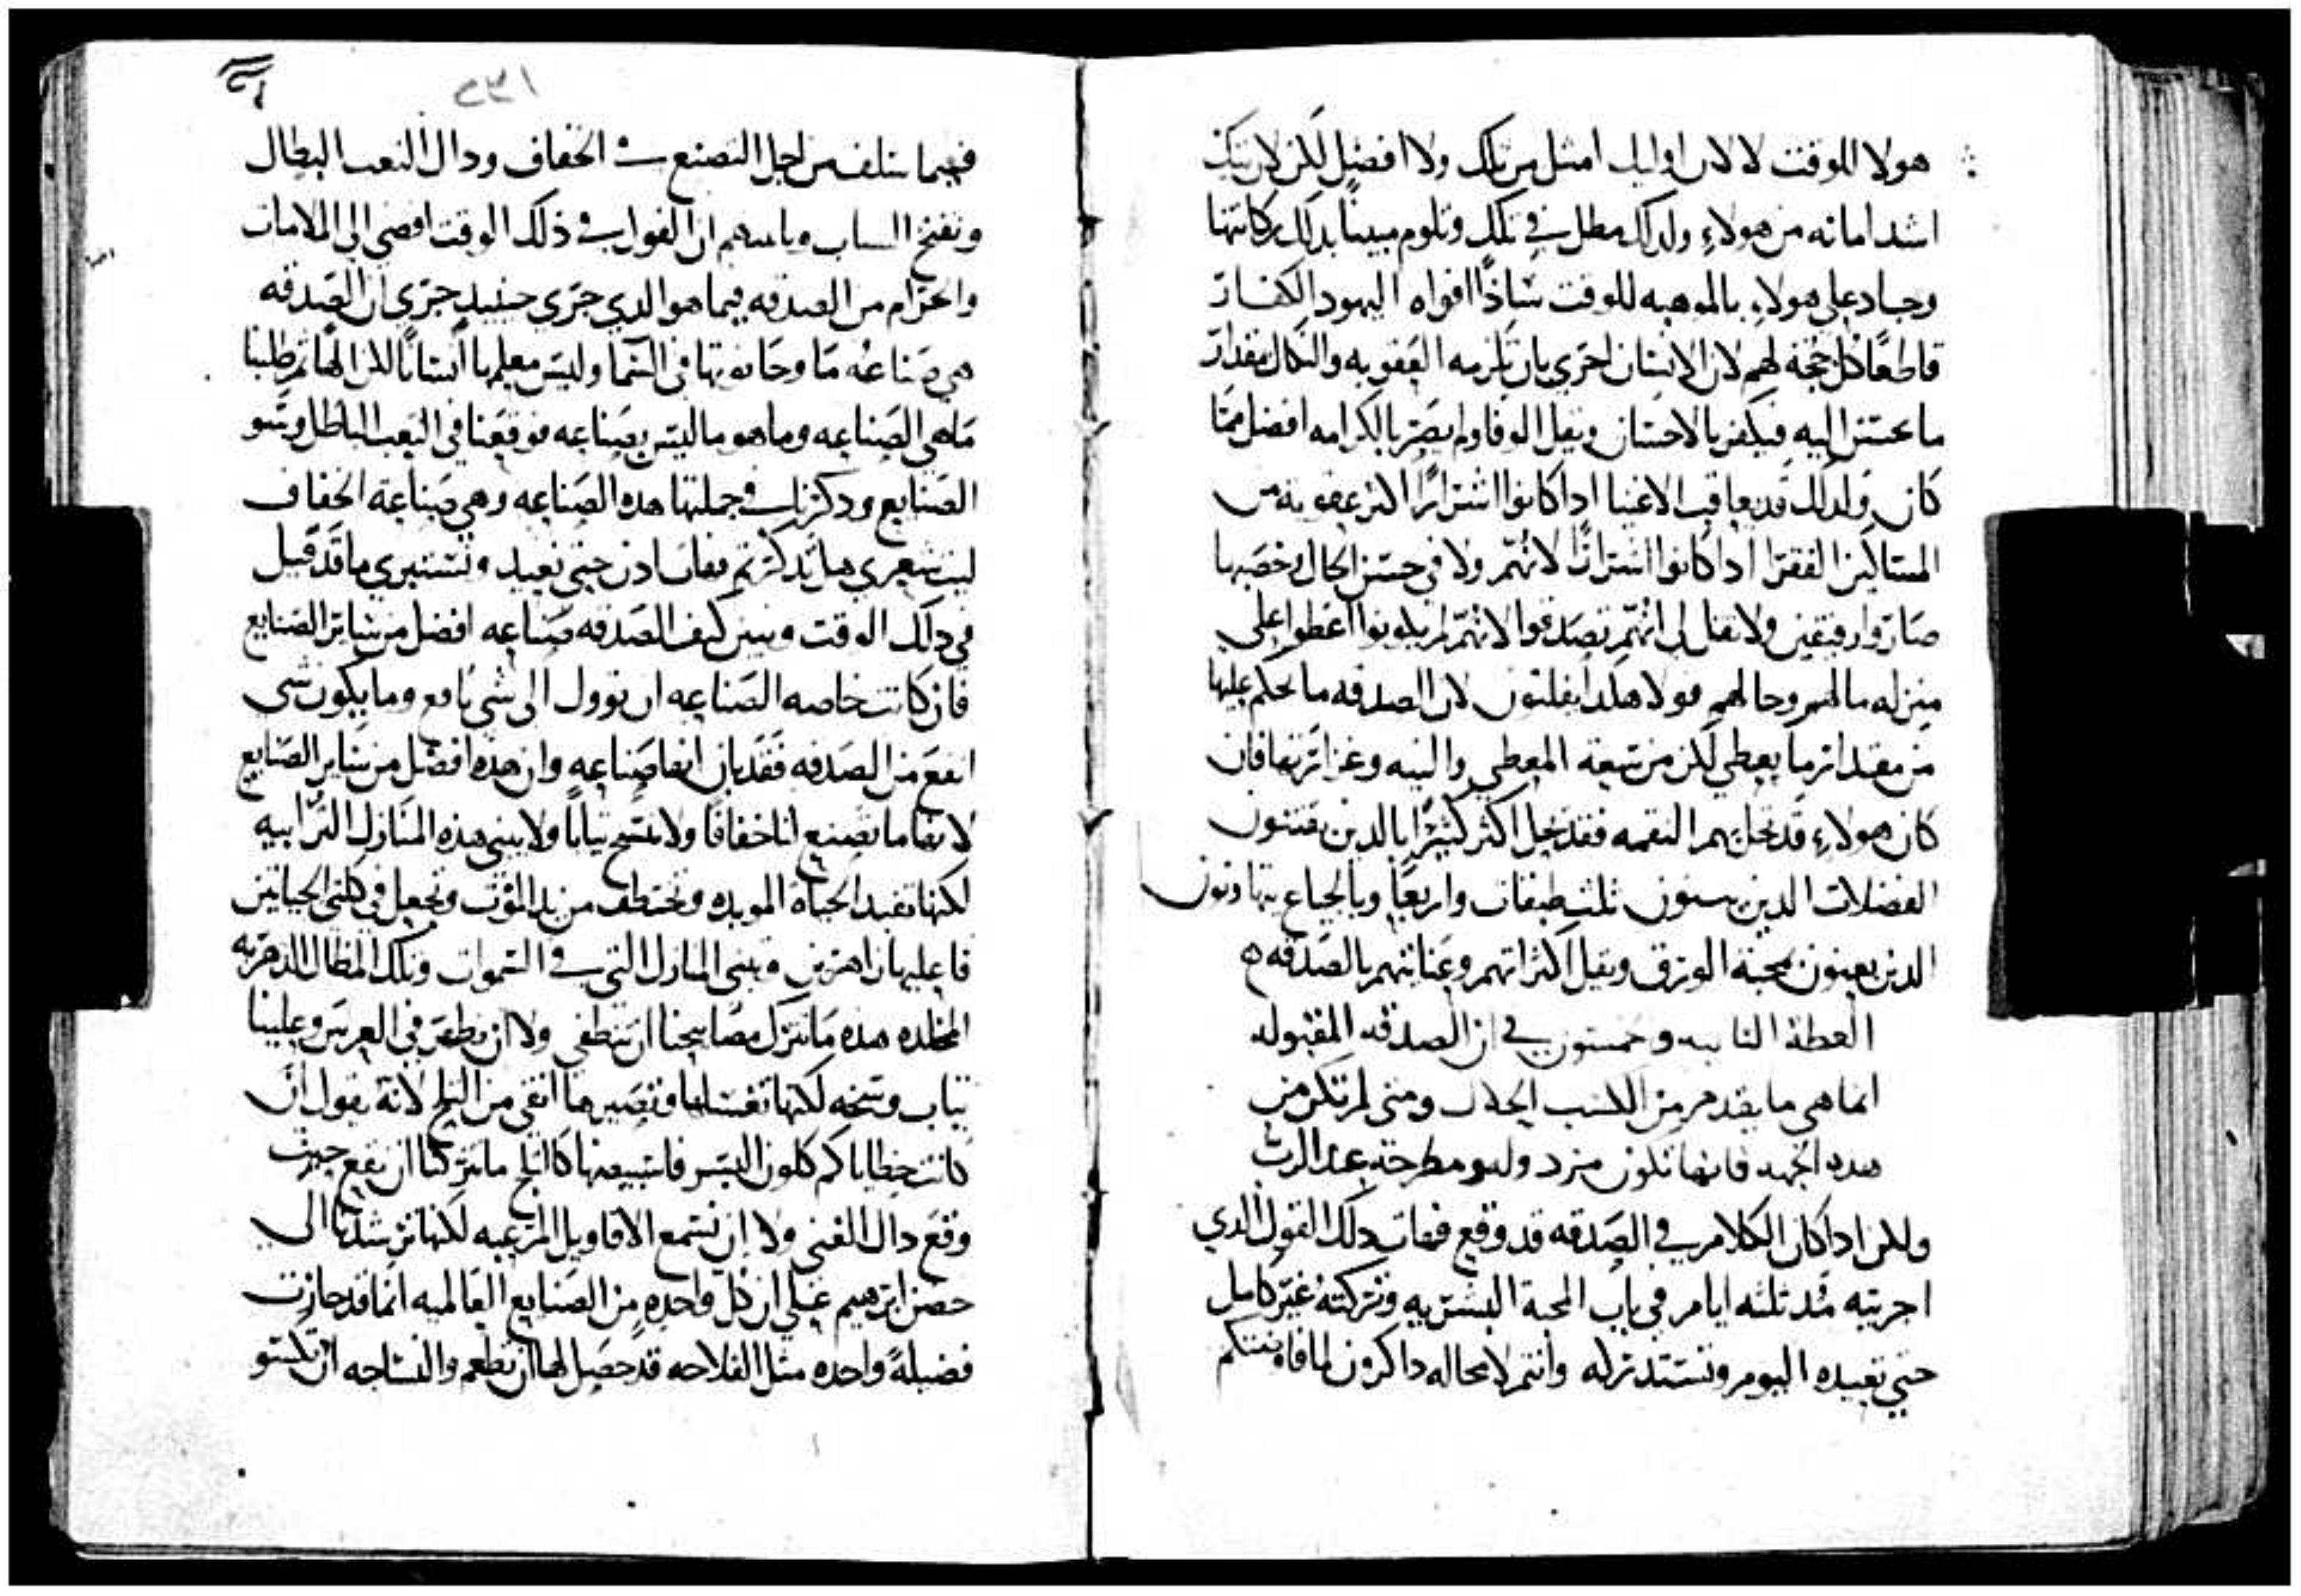 هولا الموقت لا لان اوليك امثل من تلك ولا افضل لكن لان تيك
اشد امانه من هولاء ولدلك مطل في تلك وتلوم مبينا بدلك ركانتها
وجاد على هولاء بالموهبه للوقت سادا افواه اليهود الكفار
قاطعا كل حجة لهم لان الانسان احرى بان تلزمه العقوبه والنكال مقدار
ما يحسن اليه فيكفر بالاحسان ويقل الوفا ولم يصر بالكرامه افضل مما
كان ولدلك قد يعاقب الاغنيا ادا كانوا اشرارا اكثر عقوبة من
المساكين الفقرا ادا كانوا اشرارا لانهم ولا في حسن الحال وخصبها
صاروا رفيقين ولا تقل لي انهم تصدقوا لانهم لم يكونوا اعطوا على
منزله مالهم وحالهم فولا هكدا يفلتون لان الصدقه ما يحكم عليها
من مقدار ما يعطي لكن من سعة المعطي والنيه وغزارتها فان
كان هولاء قد تحل بهم النقمه فقد تحل اكثر كثيرا بالدين يقتنون
الفضلات الدين يبنون ثلث طبقات واربعا وبالجياع يتهاونون
الدين يعنون بمحبة الورق ويقل اكتراثهم وعنايتهم بالصدقه ه
العظة الثانيه وخمسون في ان الصدقه المقبوله
انما هي ما يقدم من الكسب الحلال ومتى لم تكن من
هده الجهه فانها تكون مزدوله ومطرحة عند الرب
وللن ادا كان الكلام في الصدقه قد وقع فهات دلك القول الدي
اجريته مد ثلثه ايام في باب المحبة البشريه وتركته غير كامل
حتى نعيده اليوم ونستدركه وانتم لا محاله داكرون لمفاوضتكم
٢٣١
فيما سلف من اجل التصنع في الخفاف ودال التعب البطال
وتفخخ الساب وبانديهم ان القول في ذلك الوقت افضى الى الملامات
وانحرم من الصدقه فيما هو الدي جرى حينيد جرى ان الصدقه
هي صناعه ما وحانوتها في السما وليس معلمها انسانا لكن الها ثم طلبنا
ماهي الصناعه وما هو ما ليس بصناعه فوقعنا في التعب الباطل وسو
الصنايع ودكرنا في جملتها هده الصناعه وهي صناعة الخفاف
ليت شعري هل تدكرتم فهات ادن حتى نعيد ونستبري ما قد قيل
في دلك الوقت ونبين كيف الصدقه صناعه افضل من ساير الصنايع
فان كانت خاصه الصناعه ان توول الى شي نافع وما يكون شي
انفع من الصدقه فقد بان انها صناعه وان هده افضل من ساير الصنايع
لانها ما تصنع لنا خفافا ولا تنسج ثيابا ولا تبني هذه المنازل الترابيه
لكنها تفيد الحياة الموبده وتختطف من يد الموت وتجعل في كلتي الحياتين
فاعليها زاهرين وتبني المنازل التي في السموات وتلك المظال الدهريه
المخلده هده ما تترك مصابيحنا ان تنطفي ولا ان نظهر في العرس وعلينا
ثياب وسخه لكنها تغسلها وتصيرها انقى من الثلج لانه يقول ان
كانت خطاياكم كلون البسر فاني ابيضها كالثلج ما تتركنا ان نقع حيث
وقع دال الغني ولا ان نسمع الاقاويل المرعبه لكنها ترشدنا الى
حضن ابرهيم على ان كل واحده من الصنايع العالميه انما قد حازت
فضيلة واحده مثل الفلاحه قد حصل لها ان تطعم والنساجه ان تكسو